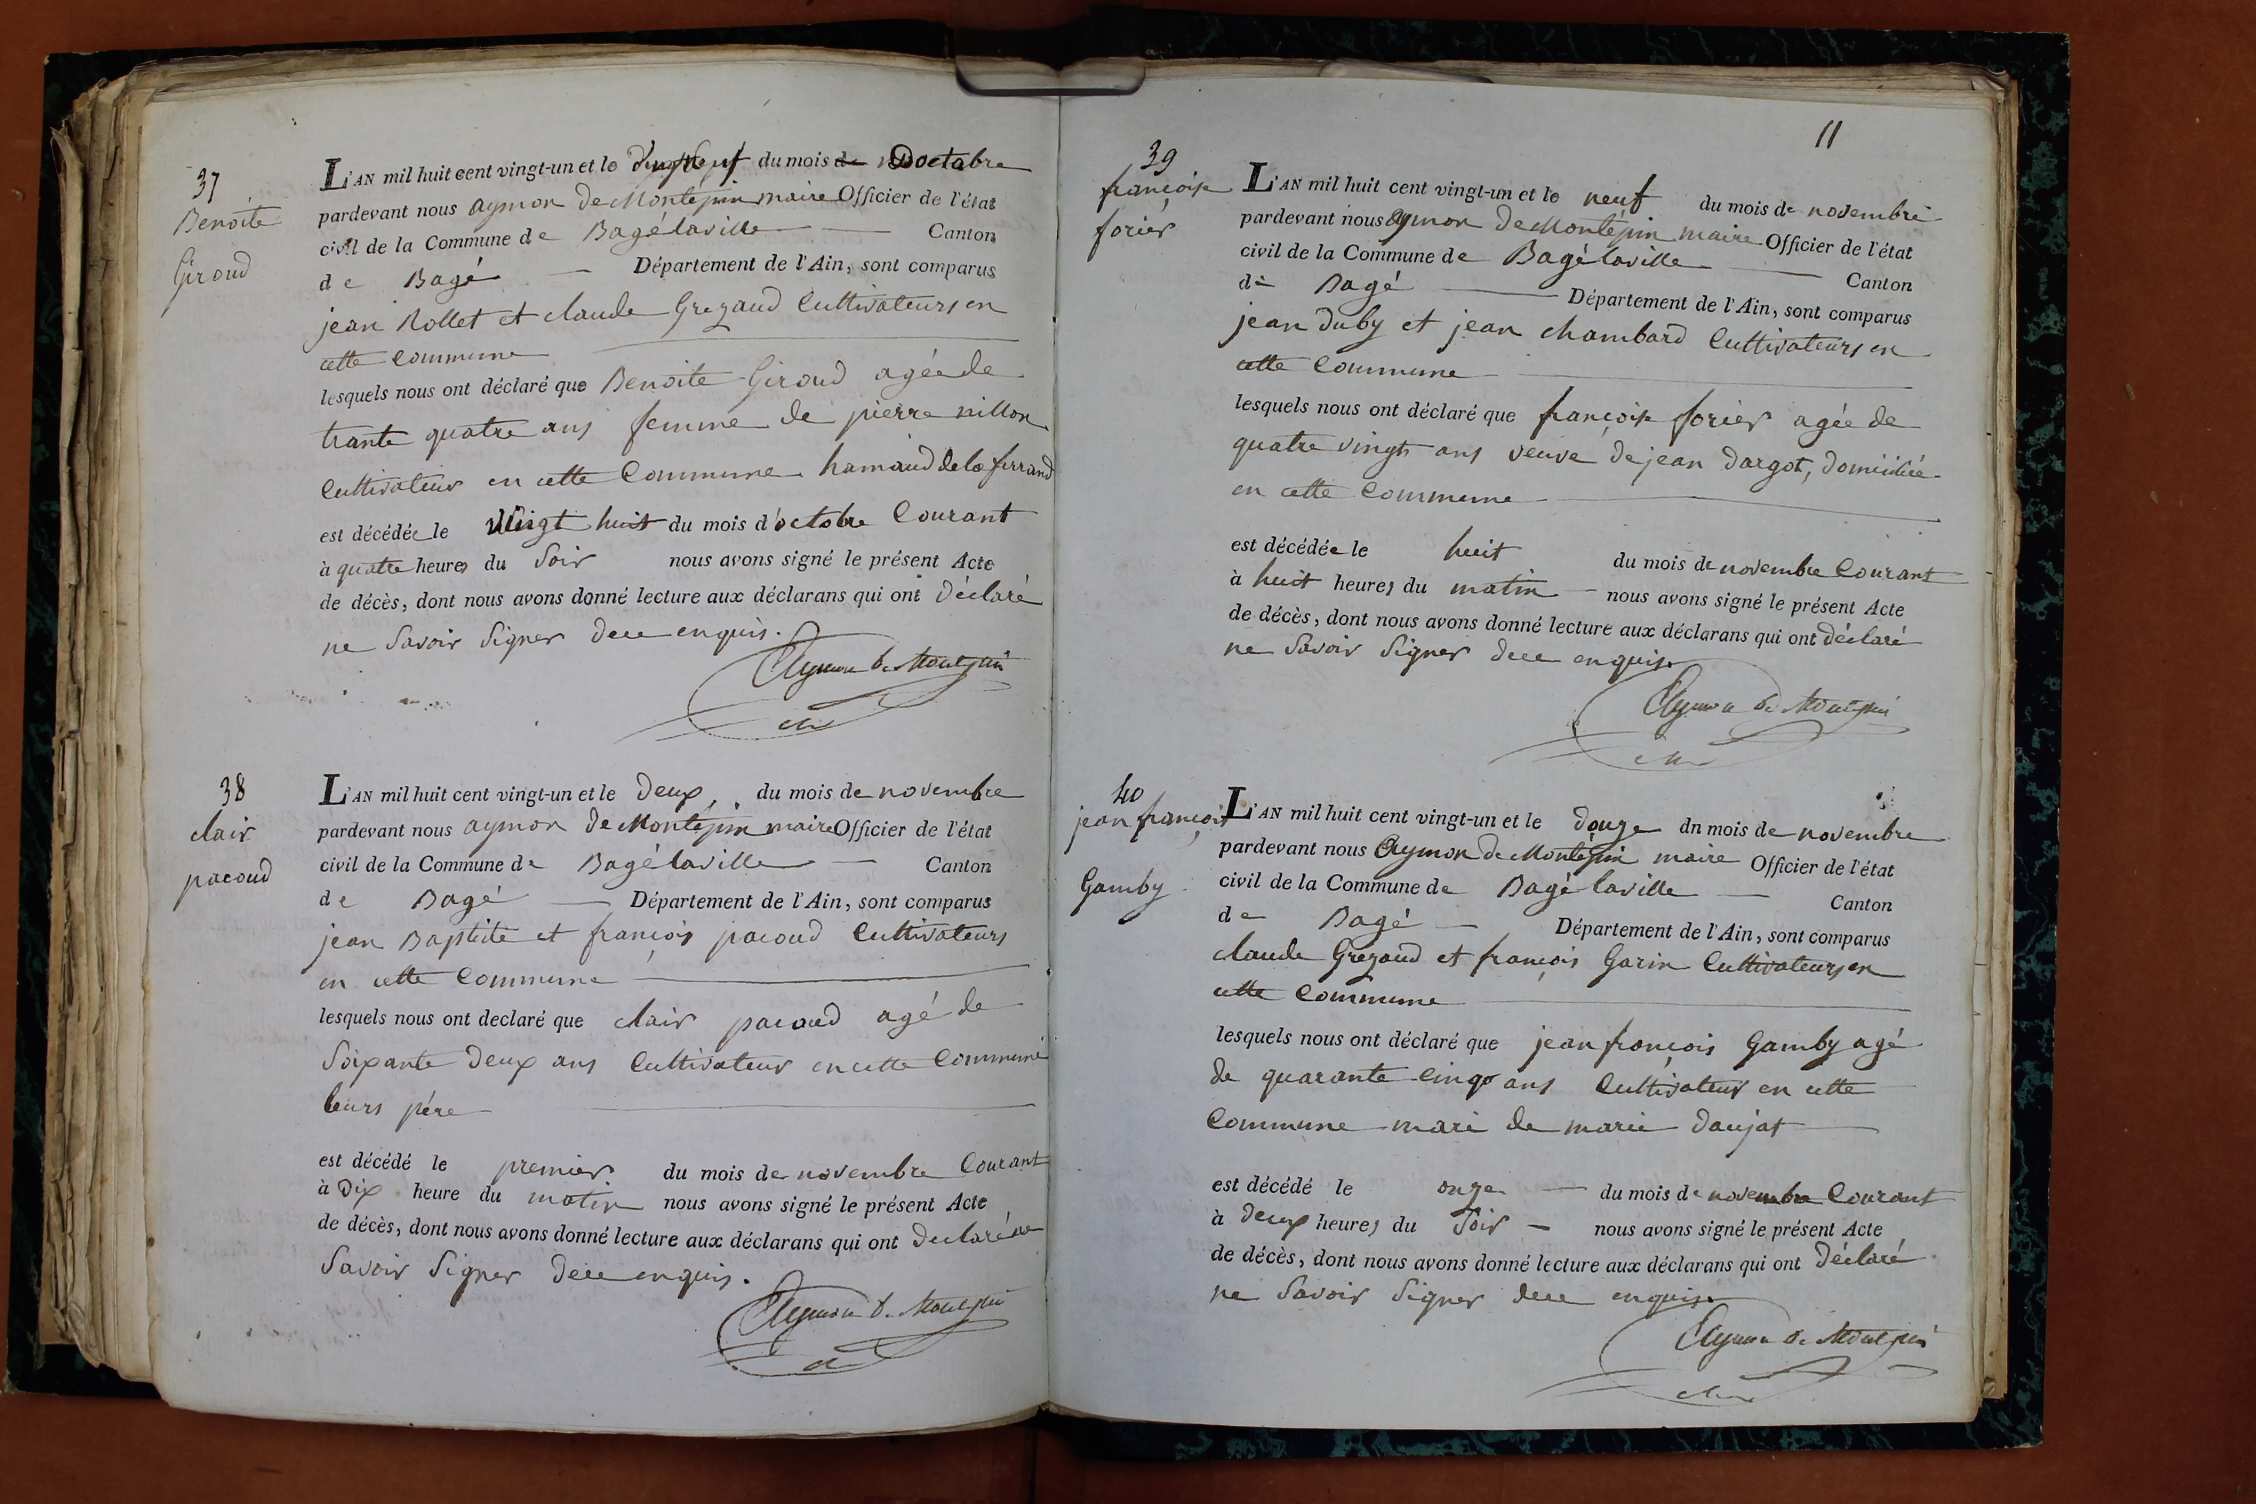 37
Benoite
Giroud
L'AN mil huit cent vingt-un et le vingt neuf du mois d'octobre
pardevant nous aymon De Montépin maire Officier de l'état
civil de la Commune de Bagélaville Canton
de Bagé Département de l'Ain, sont comparus
jean Rollet et claude Grezaud Cultivateurs en
cette Commune
lesquels nous ont déclaré que Benoite Giroud agée de
trante quatre ans femme de pierre nillon
Cultivateur en cette Commune
est décédée le vingt huit du mois d'octobre Courant
à quatre heures du Soir nous avons signé le présent Acte
de décès, dont nous avons donné lecture aux déclarans qui ont Déclaré
ne Savoir Signer Dece enquis.
Aymon De Montépin
38
clair
pacoud
L'AN mil huit cent vingt-un et le Deux, du mois de novembre
pardevant nous aymon De Montépin maire Officier de l'état
civil de la Commune de Bagélaville Canton
de Bagé Département de l'Ain, sont comparus
jean Baptiste et françois pacoud Cultivateurs
en cette Commune
lesquels nous ont declaré que clair pacoud agé de
Soixante Deux ans Cultivateur en cette Commune
leurs pére
est décédé le premier du mois de novembre Courant
à Dix heure du matin nous avons signé le présent Acte
de décès, dont nous avons donné lecture aux déclarans qui ont Declaré ne
Savoir Signer Dece enquis.
Aymon De Montépin
11
39
françoise
forier
L'AN mil huit cent vingt-un et le neuf du mois de novembre
pardevant nous Aymon De Montépin maire Officier de l'état
civil de la Commune de Bagélaville Canton
de Bagé Département de l'Ain, sont comparus
jean Duby et jean chambard Cultivateurs en
cette Commune
lesquels nous ont déclaré que françoise forier agée de
quatre vingts ans veuve de jean Dargot, Domiciliée
en cette Commune
est décédée le huit du mois de novembre Courant
à huit heures du matin nous avons signé le présent Acte
de décès, dont nous avons donné lecture aux déclarans qui ont Déclaré
ne Savoir Signer Dece enquis.
Aymon De Montépin
40
jean françois
Gamby
L'AN mil huit cent vingt-un et le Douze dn mois de novembre
pardevant nous Aymon De Montépin maire Officier de l'état
civil de la Commune de Bagé laville Canton
de Bagé Département de l'Ain, sont comparus
claude Grezaud et françois Garin Cultivateurs en
cette Commune
lesquels nous ont déclaré que jean françois Gamby agé
de quarante Cinq ans Cultivateur en cette
Commune mari de marie Daujat
est décédé le onze du mois de novembre Courant
à Deux heures du Soir nous avons signé le présent Acte
de décès, dont nous avons donné lecture aux déclarans qui ont Déclaré
ne Savoir Signer Dece enquis.
Aymon De Montépin